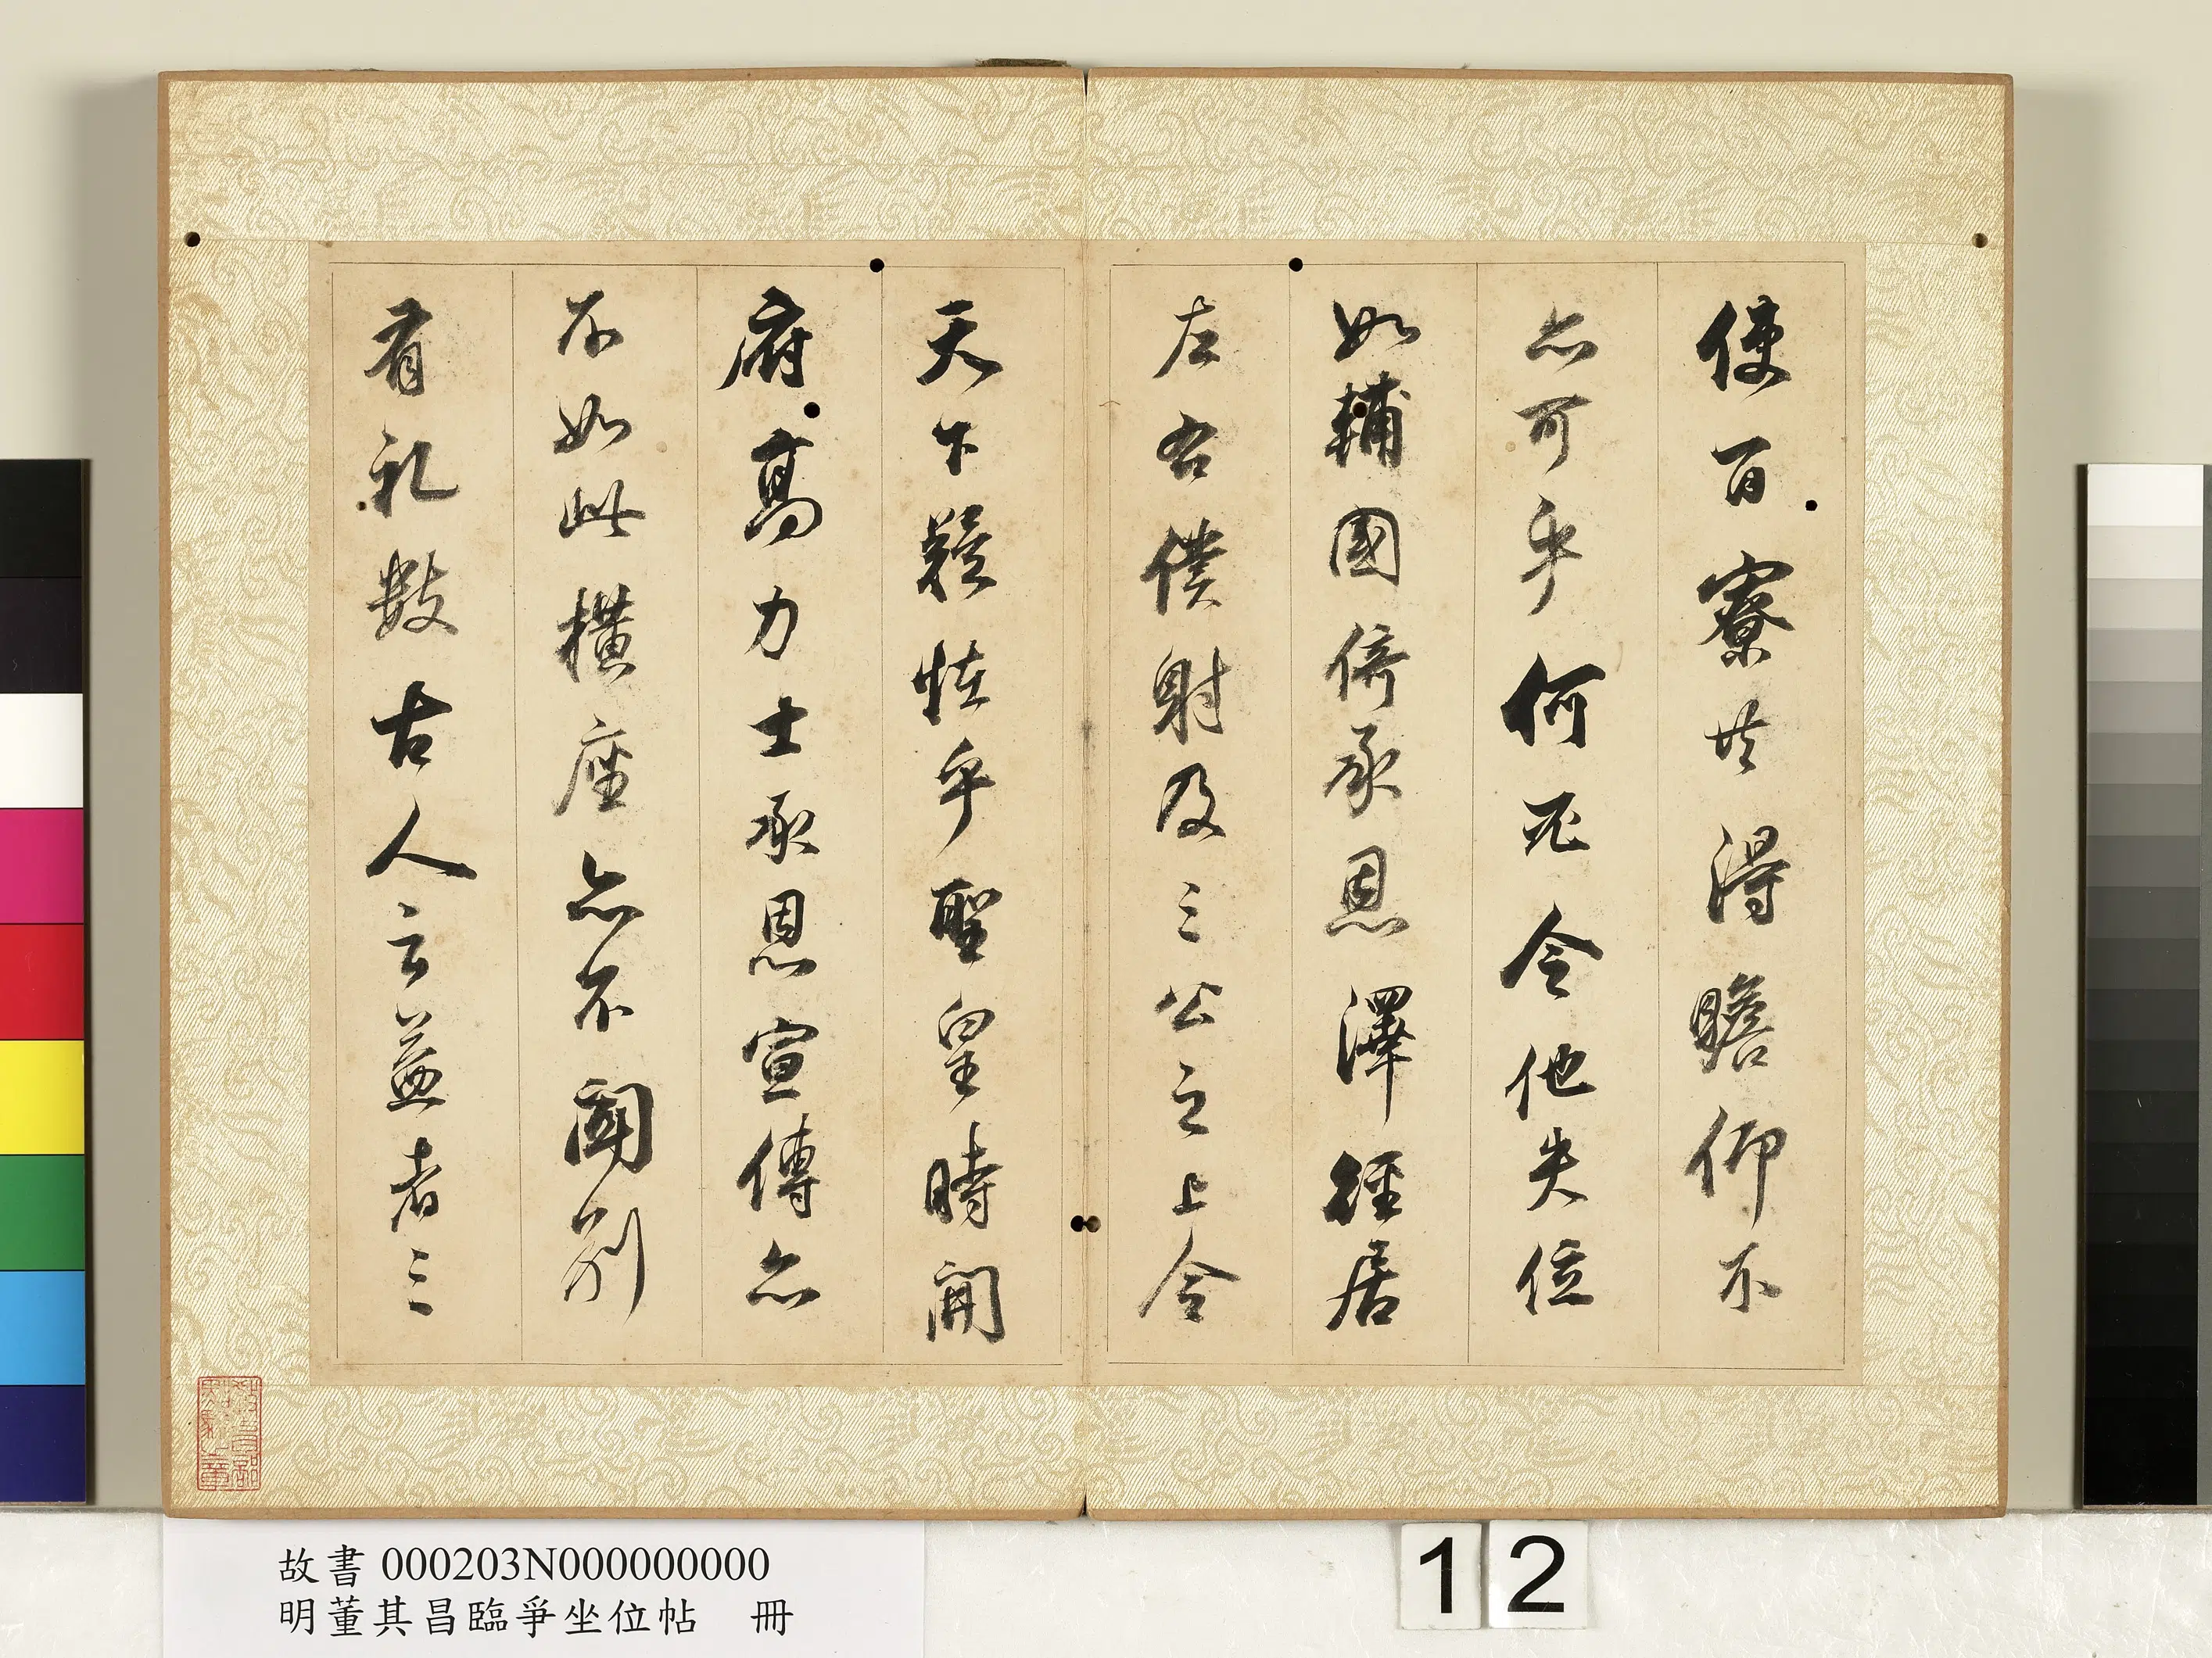 使百寮共得瞻仰不
亦可乎何令他失位
如輔國倚承恩澤徑居
左右僕射及三公之上令
天下疑怪乎聖皇時開
府高力士承恩宣傳亦
不如此橫座亦不聞別
有礼數古人云益者三
教育部點驗之章
故書 000203N000000000
明董其昌臨爭坐位帖 冊
12